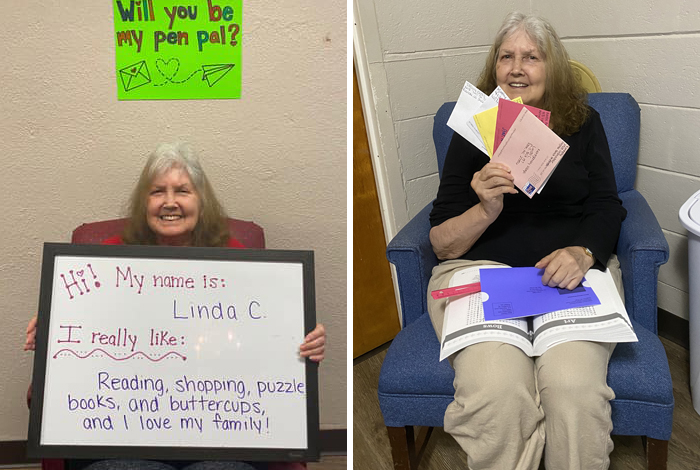 Will you be
my pen pal?
Hi! My name is:
Linda C.
I really like:
Reading, shopping, puzzle
books, and buttercups,
and I love my family!